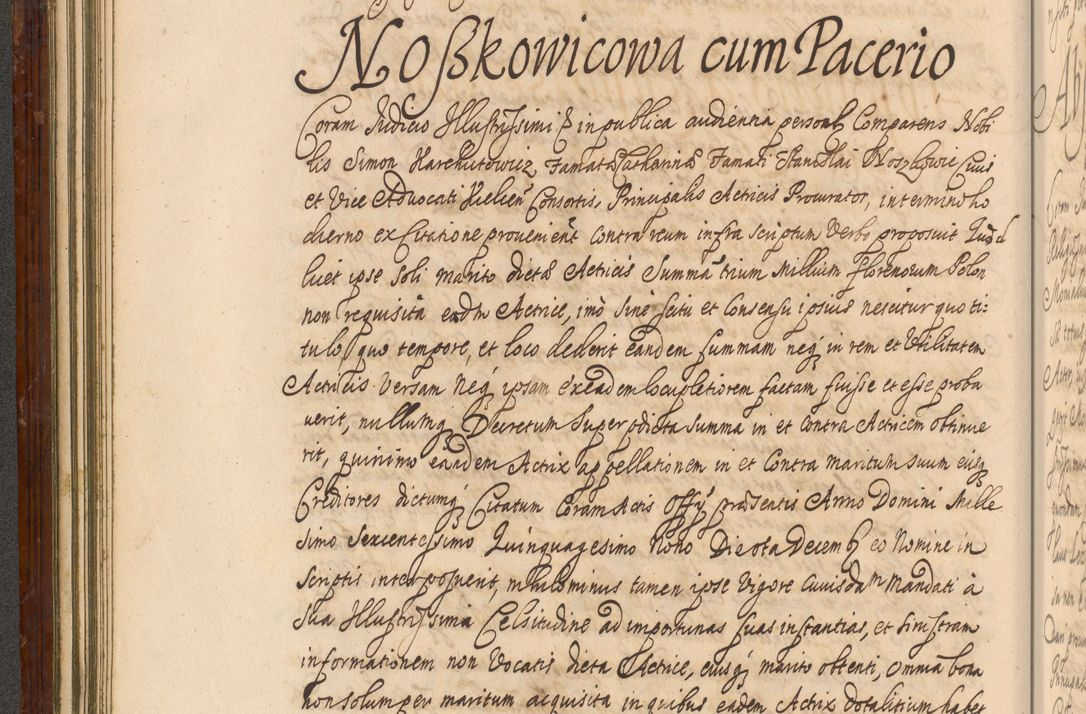 Noßkowicowa cum Pacerio
Coram Judicio Illustrissimi & in publica audientia personal Comparens Nobi
lis Simon Harchutowicz Famatæ Catharinæ Famati Stanislai Noszkowic Civis
et Vice Advocati Kielcen Consortis, Principalis Actricis Procurator, in termino ho
dierno ex Citatione provenienť Contra reum infra scriptum Verbo proposuit Quod
licet ipse soli marito dictæ Actricis Summã trium Millium florenorum Polon
non requisita eadm Actrice, imò sine scitu et Consensu ipsius nescitur quo ti:
tulo quo tempore, et loco dederit eandem summam neq in rem et Utilitatem
Actricis Versam Neq ipsam ex eadem locupletiorem factam fuisse et esse proba
verit, nullumq Decretum Super prædicta summa in et Contra Actricem obtinue
rit, quinimo eandem Actrix appellationem in et Contra maritum suum eiusq
Creditores dictumq Citatum Coram Actis Offy præsentis Anno Domini Mille
simo Sexcentessimo Quinquagesimo Nono Die 8ta Decemb eo Nomine in
scriptis interposuerit, nihilominus tamen ipse Vigore Cuiusdam Mandati à
Sua Illustrissima Celsitudine ad importunas suas instantias, et sinistram
informationem non Vocatis dicta Actrice, eiusq marito obtenti, Omnia bona
non solum per maritum acquisita in quibus eadem Actrix dotalitium habet